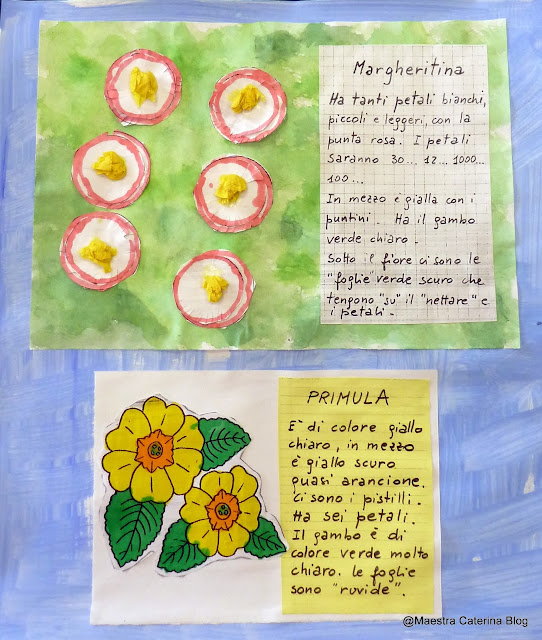 Margheritina
Ha tanti petali bianchi,
piccoli e leggeri, con la
punta rosa. I petali
saranno 30... 12... 1000...
100...
In mezzo è gialla con i
puntini. Ha il gambo
verde chiaro.
Sotto il fiore ci sono le
"foglie" verde scuro che
tengono "su" il "nettare" e
i petali.
PRIMULA
E' di colore giallo
chiaro, in mezzo
è giallo scuro
quasi arancione.
Ci sono i pistilli.
Ha sei petali.
Il gambo è di
colore verde molto
chiaro. Le foglie
sono "ruvide".
@Maestra Caterina Blog